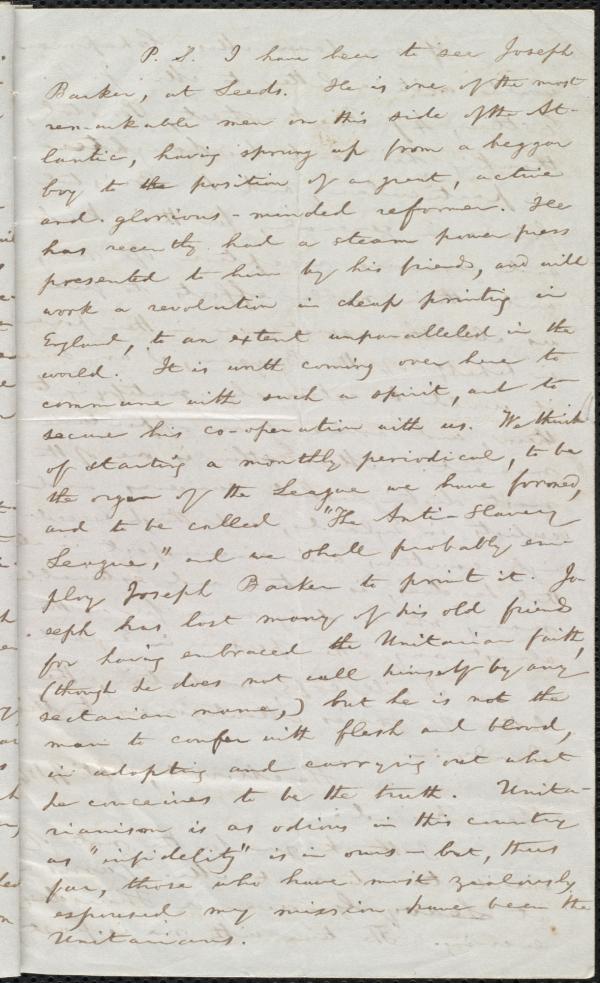 P. S. I have been to see Joseph
Barker, at Leeds. He is one of the most
remarkable men on this side of the At-
lantic, having sprung up from a beggar
boy to the position of a great, active
and glorious-minded reformer. He
has recently had a steam power press
presented to him by his friends, and will
work a revolution in cheap printing in
England, to an extent unparalleled in the
world. It is worth coming over here to
commune with such a spirit, and to
secure his co-operation with us. We think
of starting a monthly periodical, to be
the organ of the League we have formed,
and to be called "The Anti-Slavery
League," and we shall probably em-
ploy Joseph Barker to print it. Jo-
seph has lost many of his old friends
for having embraced the Unitarian faith,
(though he does not call himself by any
sectarian name,) but he is not the
man to confer with flesh and blood,
in adopting and carrying out what
he conceives to be the truth. Unita-
rianism is as odious in this country
as "infidelity" is in ours – but, thus
far, those who have most zealously
espoused my mission have been the
Unitarians.